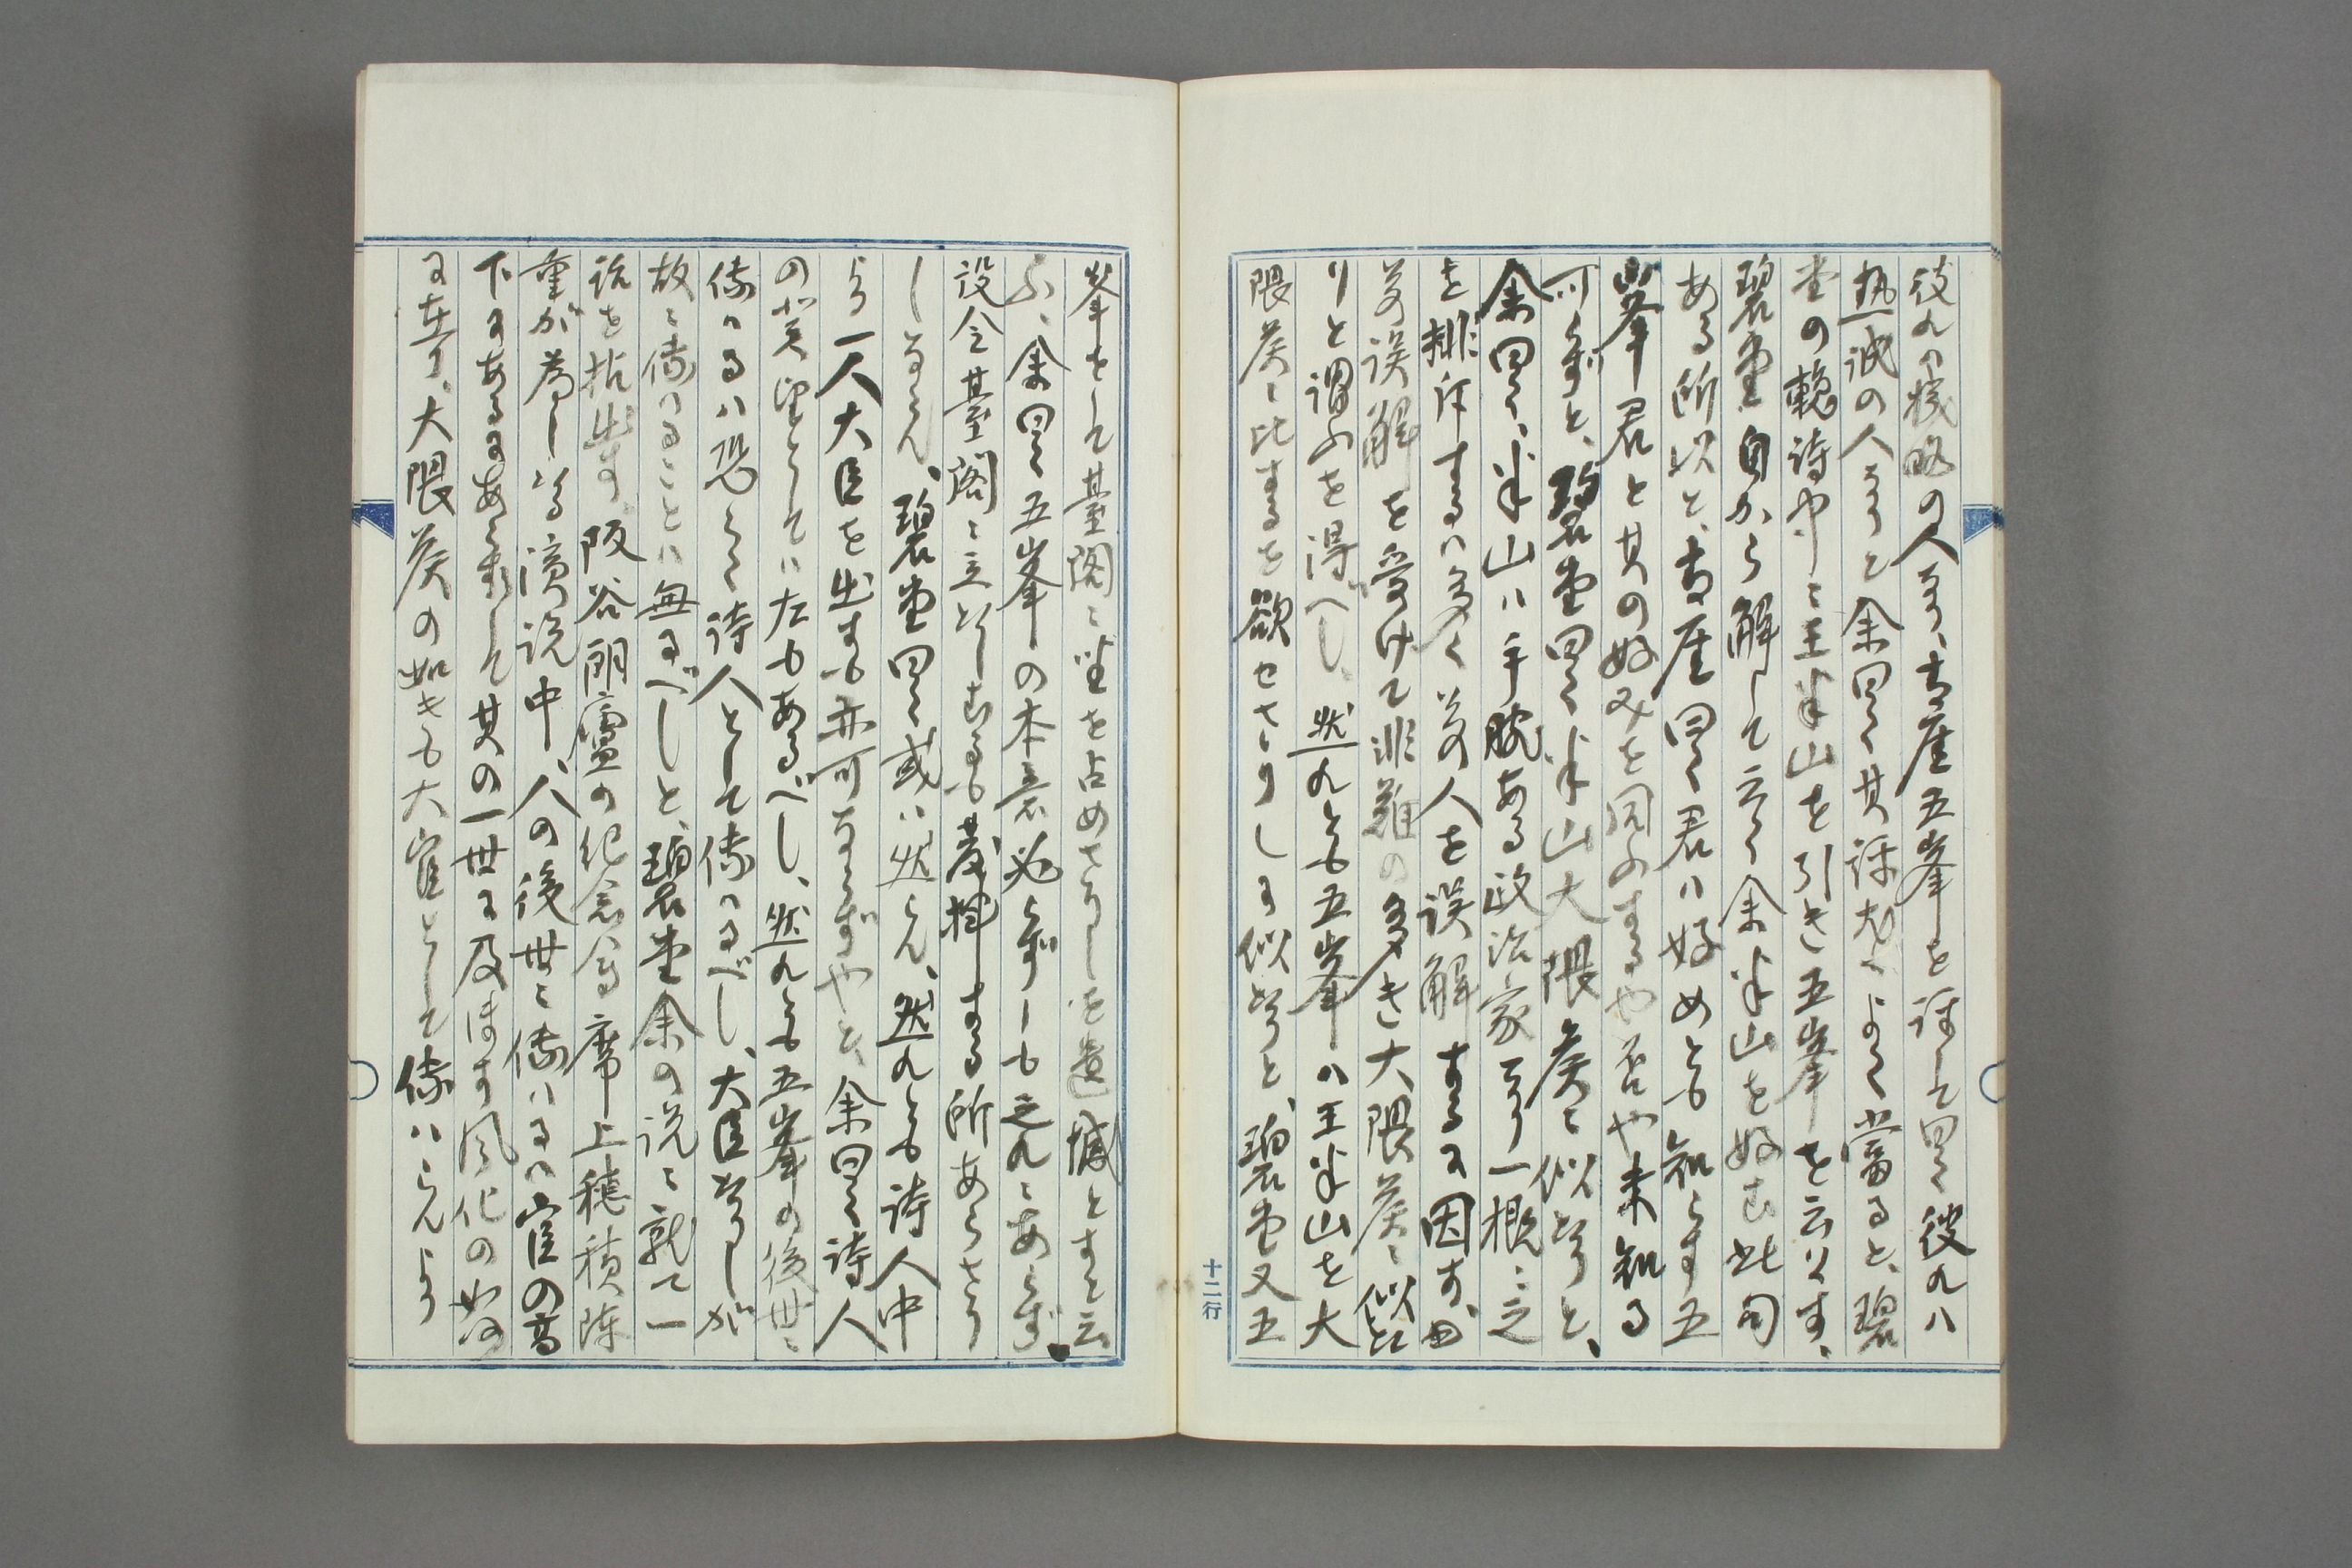 彼れハ機略の人なり、古崖五峯を評して曰く彼れハ
熱誠の人なりと余曰く其評尤よく當ると、碧
堂の輓詩中ニ王半山を引き五峯を云々す、
碧堂自から解して云く余半山を好む此句
ある所以と、古崖曰く君ハ好めとも知らす五
峯君と其の好みを同ふするや否や未知る
可らずと、碧堂曰く半山大隈侯ニ似たりと、
余曰く、半山ハ手腕ある政治家なり一概ニ之
を排斥するハ多く其人を誤解するに因す、
其誤解を受けて非難の多き大隈侯ニ似た
りと謂ふを得べし、然れとも五峯ハ王半山を大
隈侯ニ比するを欲せさりしに似たりと、碧堂又五
峯をして臺閣ニ坐を占めさりしを遺憾とすと云
ふ、余曰く五峯の本意必らずしも之れニあらず、
設令臺閣ニ立たしむるも發揮する所あらさり
しならん、碧堂曰く或ハ然らん、然れとも詩人中
より一人大臣を出すも亦可ならずやと、余曰く詩人
の冀望としてハ左もあるべし、然れとも五峯の後世ニ
傳ハるハ恐らく詩人として傳ハるべし、大臣たりしが
故ニ傳ハることハ無るべしと、碧堂余の説ニ就て一
説を拈出す、阪谷朗廬の紀念會席上穂積陳
重が為しゝる演説中、人の後世ニ傳ハるハ官の高
下にあるにあらずして其の一世に及ほす風化の如何
に在り、大隈侯の如きも大官として傳ハらんより
十二行